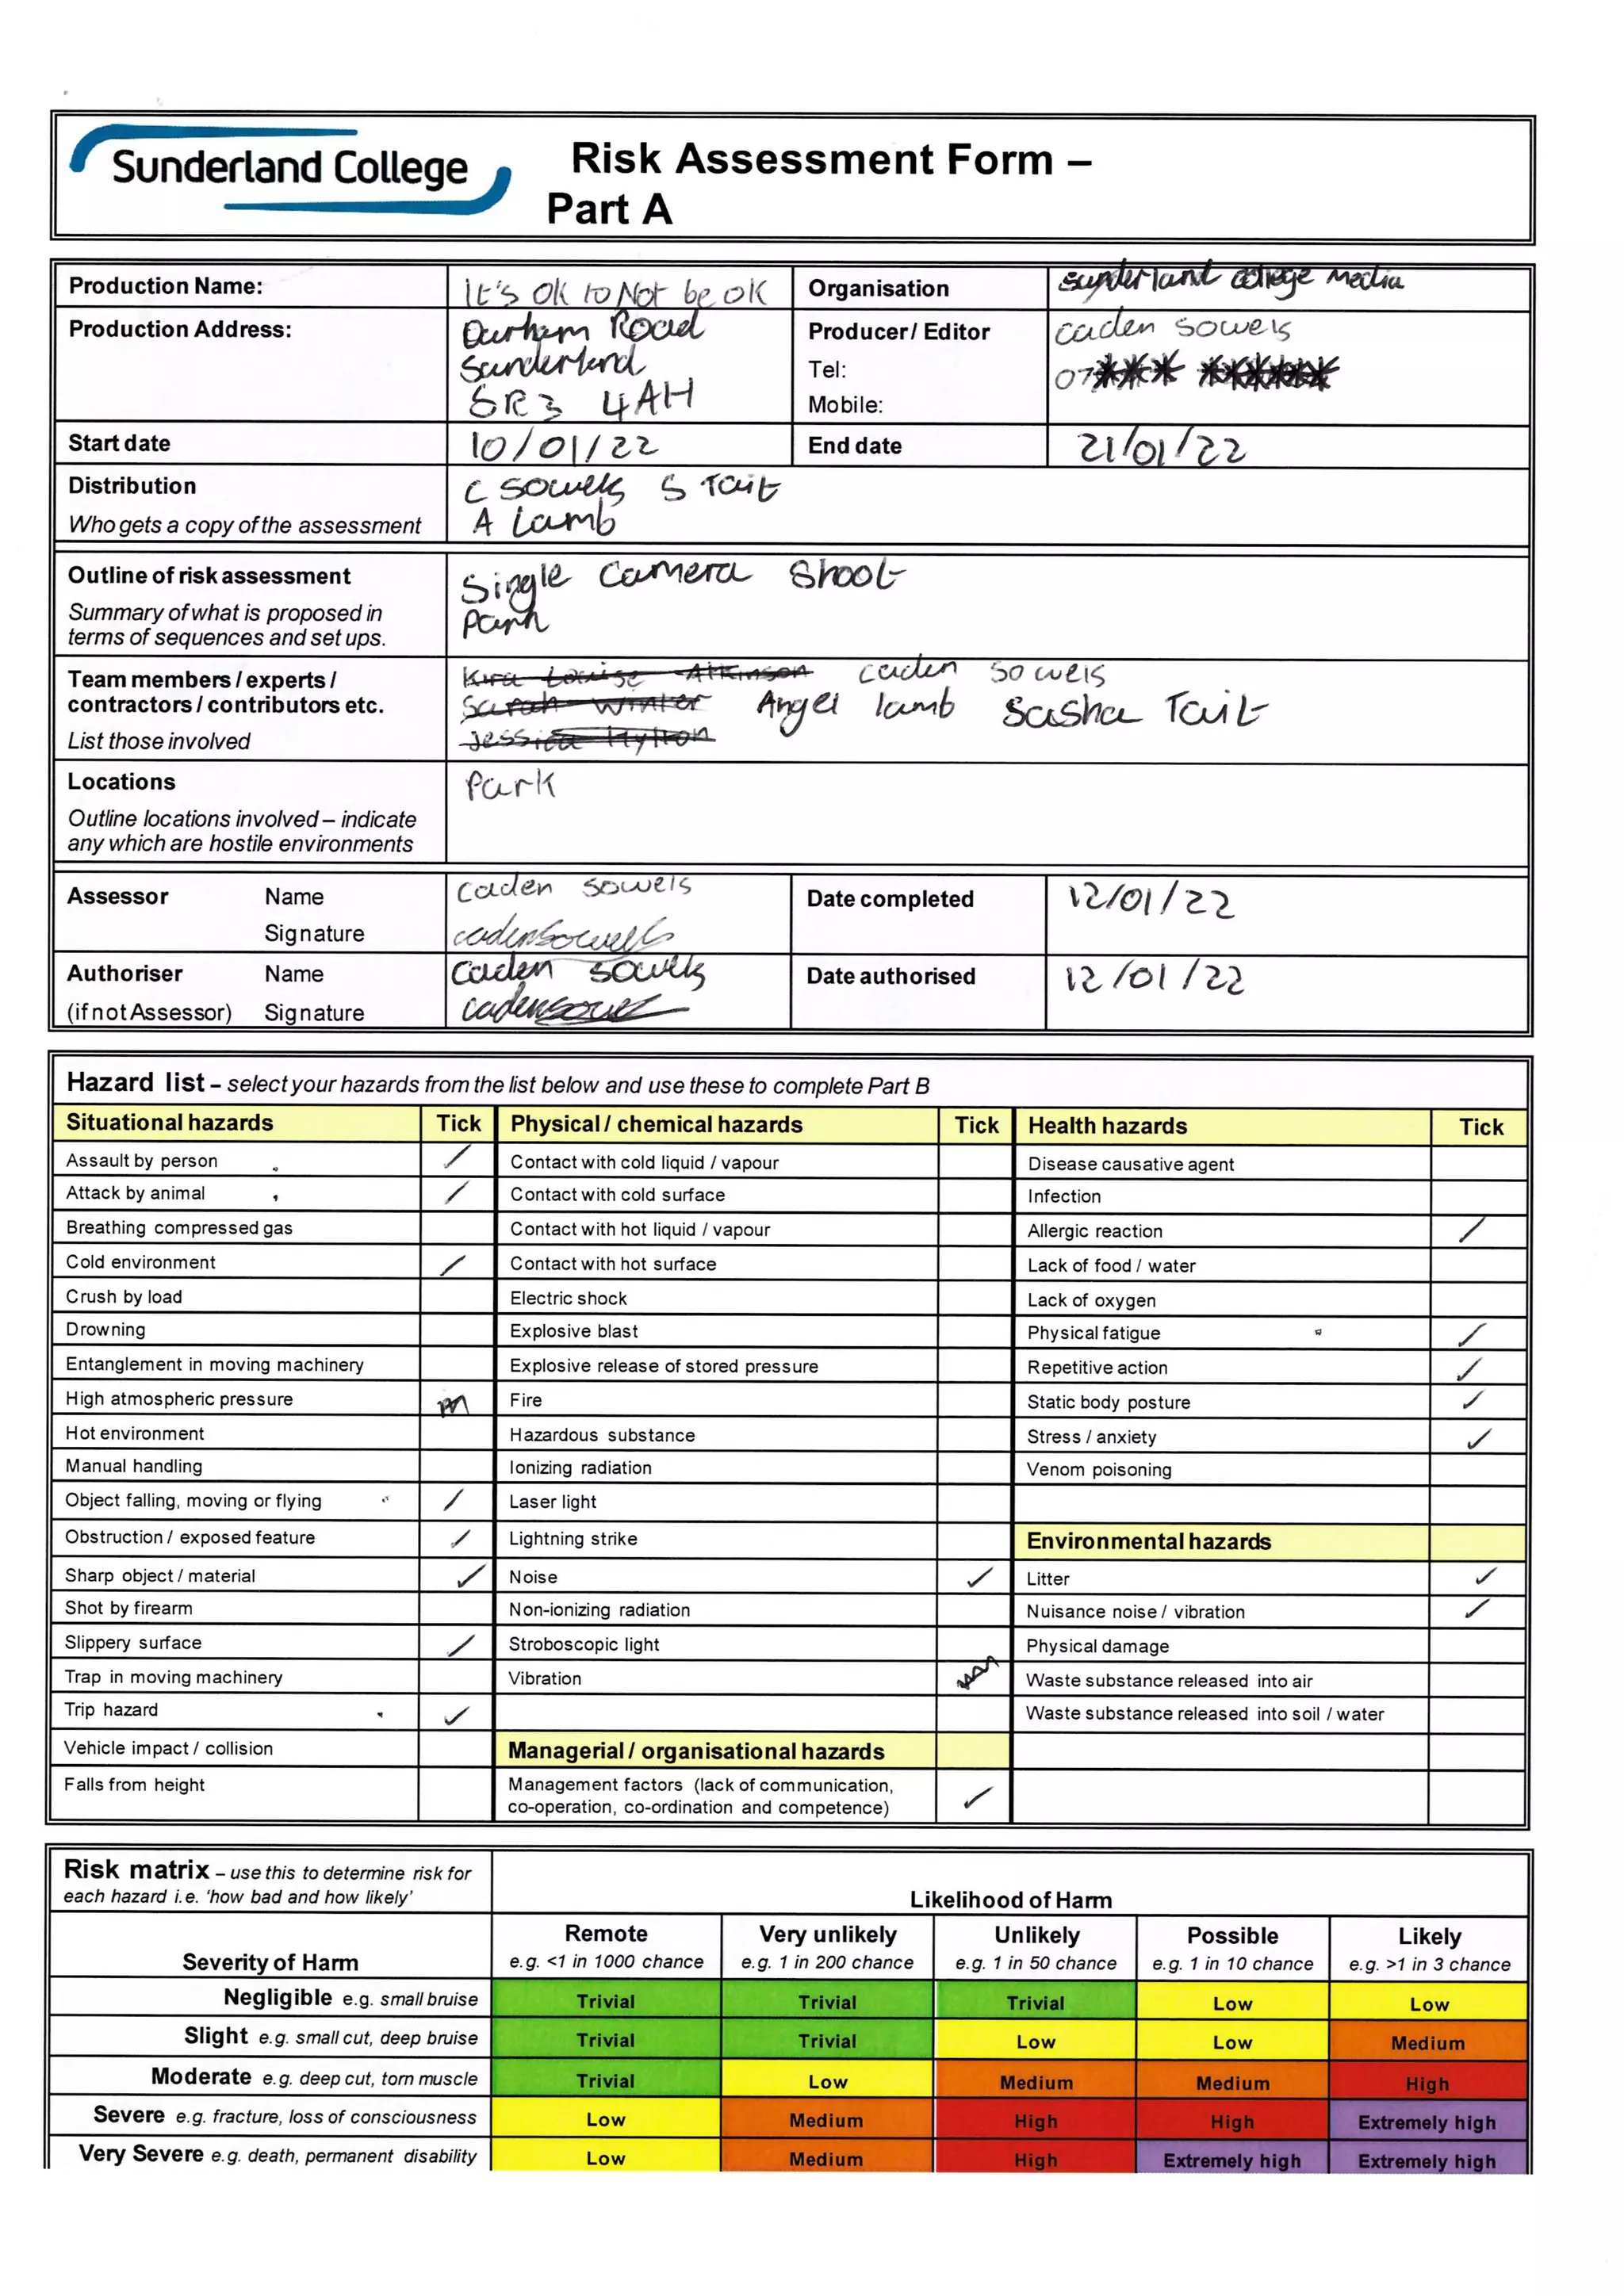 Sunderland College
Risk Assessment Form –
Part A
Production Name: It's OK to Not be OK Organisation Sunderland College Media
Production Address: Durham Road Sunderland SR3 4AH Producer/ Editor Caden Sowels
Tel: 07
Mobile:
Start date 10/01/22 End date 21/01/22
Distribution C Sowels S Tait
Who gets a copy of the assessment A Lamb
Outline of risk assessment Single Camera Shoot
Summary of what is proposed in Park
terms of sequences and set ups.
Team members / experts / Kira Louise Atkinson Caden Sowels
contractors / contributors etc. Sarah Winter Angel lamb Sasha Tait
List those involved Jessica Hylton
Locations Park
Outline locations involved – indicate
any which are hostile environments
Assessor Name Caden Sowels Date completed 12/01/22
Signature cadensowels
Authoriser Name Caden Sowels Date authorised 12/01/22
(if not Assessor) Signature
Hazard list – select your hazards from the list below and use these to complete Part B
Situational hazards Tick Physical / chemical hazards Tick Health hazards Tick
Assault by person / Contact with cold liquid / vapour Disease causative agent
Attack by animal / Contact with cold surface Infection
Breathing compressed gas Contact with hot liquid / vapour Allergic reaction /
Cold environment / Contact with hot surface Lack of food / water
Crush by load Electric shock Lack of oxygen
Drowning Explosive blast Physical fatigue ✓
Entanglement in moving machinery Explosive release of stored pressure Repetitive action ✓
High atmospheric pressure Fire Static body posture ✓
Hot environment Hazardous substance Stress / anxiety ✓
Manual handling Ionizing radiation Venom poisoning
Object falling, moving or flying / Laser light
Obstruction / exposed feature ✓ Lightning strike Environmental hazards
Sharp object / material ✓ Noise ✓ Litter ✓
Shot by firearm Non-ionizing radiation Nuisance noise / vibration ✓
Slippery surface ✓ Stroboscopic light Physical damage
Trap in moving machinery Vibration Waste substance released into air
Trip hazard ✓ Waste substance released into soil / water
Vehicle impact / collision Managerial / organisational hazards
Falls from height Management factors (lack of communication,
co-operation, co-ordination and competence) ✓
Risk matrix – use this to determine risk for
each hazard i.e. 'how bad and how likely' Likelihood of Harm
Severity of Harm Remote Very unlikely Unlikely Possible Likely
e.g. <1 in 1000 chance e.g. 1 in 200 chance e.g. 1 in 50 chance e.g. 1 in 10 chance e.g. >1 in 3 chance
Negligible e.g. small bruise Trivial Trivial Trivial Low Low
Slight e.g. small cut, deep bruise Trivial Trivial Low Low Medium
Moderate e.g. deep cut, torn muscle Trivial Low Medium Medium High
Severe e.g. fracture, loss of consciousness Low Medium High High Extremely high
Very Severe e.g. death, permanent disability Low Medium High Extremely high Extremely high